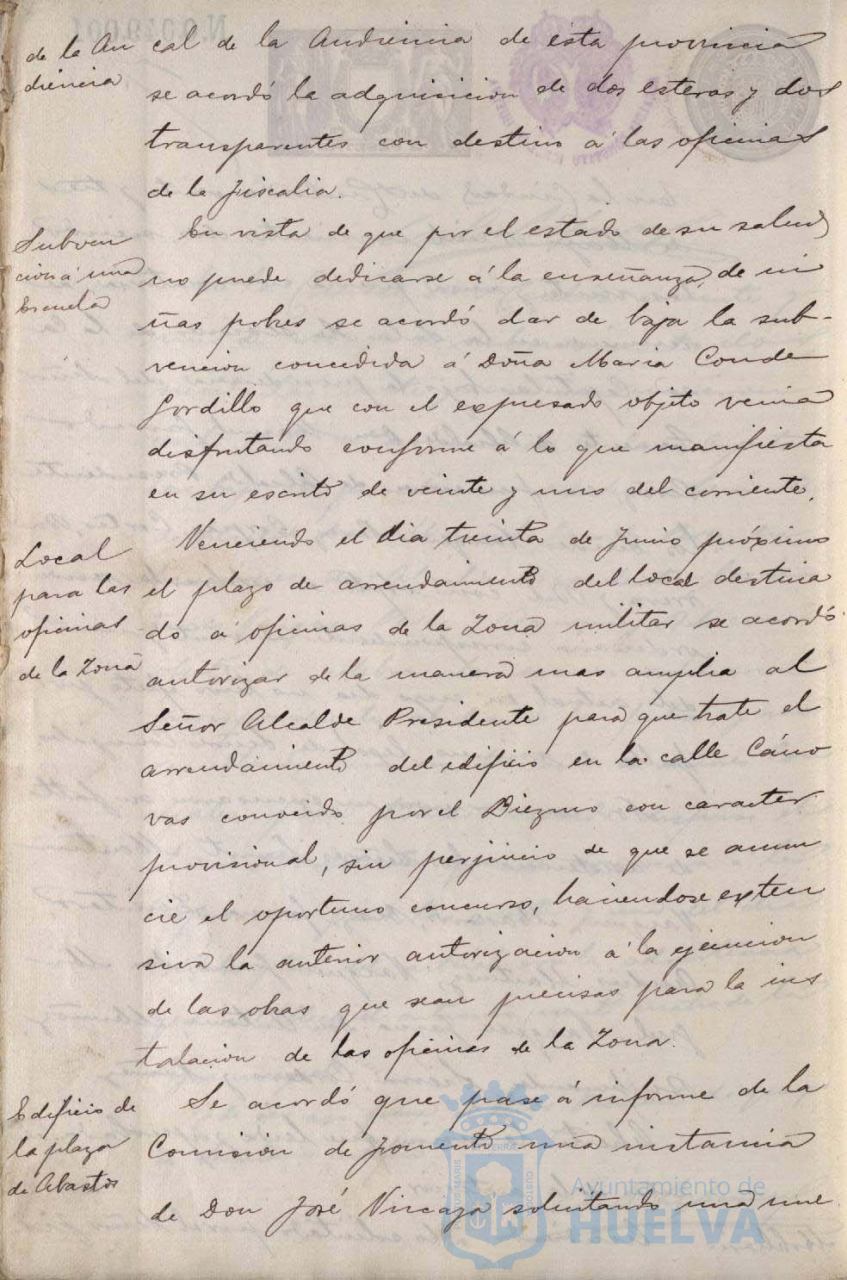 de la Au
diencia
cal de la Audiencia de esta provincia
se acordó la adquisicion de dos esteras y dos
transparentes con destino á las oficinas
de la Fiscalia.
Subven
cion á una
Escuela
En vista de que por el estado de su salud
no puede dedicarse á la enseñanza de ni
ñas pobres se acordó dar de baja la sub-
vencion concedida á Doña Maria Conde
Gordillo que con el expresado objeto venia
disfrutando conforme á lo que manifiesta
en su escrito de veinte y uno del corriente.
Local
para las
oficinas
de la Zona
Venciendo el dia treinta de Junio próximo
el plazo de arrendamiento del local destina
do á oficinas de la Zona militar se acordó
autorizar de la manera mas amplia al
Señor Alcalde Presidente para que trate el
arrendamiento del edificio en la calle Cáno
vas conocido por el Diezmo con caracter
provisional, sin perjuicio de que se anun
cie el oportuno concurso, haciendose exten
siva la anterior autorizacion á la ejecucion
de las obras que sean precisas para la ins
talacion de las oficinas de la Zona.
Edificio de
la plaza
de Abastos
Se acordó que pase á informe de la
Comision de fomento una instancia
de Don José Vizcaya solicitando una nue
Ayuntamiento de
HUELVA